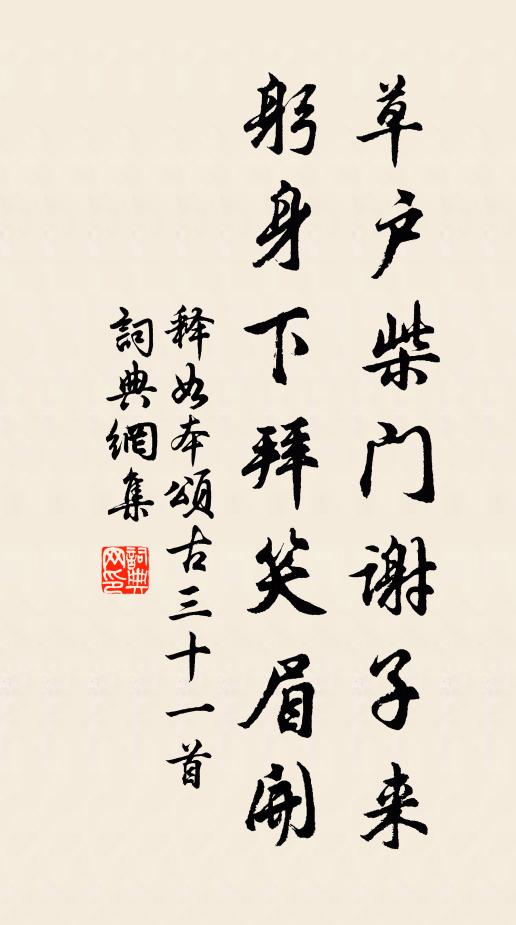 草户柴门谢子来
躬身下拜笑眉开
释如本颂古三十一首
詞典網集
詞典网印